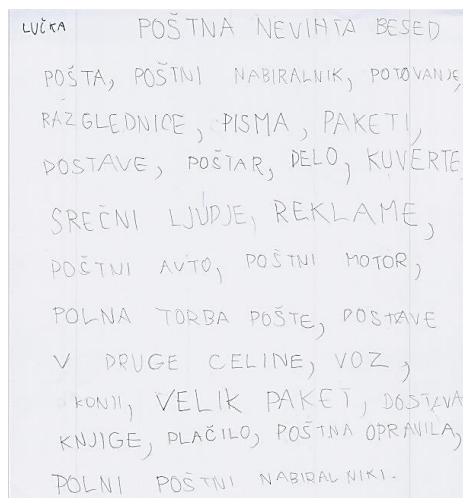 LUČKA POŠTNA NEVIHTA BESED
POŠTA, POŠTNI NABIRALNIK, POTOVANJE,
RAZGLEDNICE, PISMA, PAKETI,
DOSTAVE, POŠTAR, DELO, KUVERTE,
SREČNI LJUDJE, REKLAME,
POŠTNI AVTO, POŠTNI MOTOR,
POLNA TORBA POŠTE, DOSTAVE
V DRUGE CELINE, VOZ,
KONJI, VELIK PAKET, DOSTAVA
KNJIGE, PLAČILO, POŠTNA OPRAVILA,
POLNI POŠTNI NABIRALNIKI.